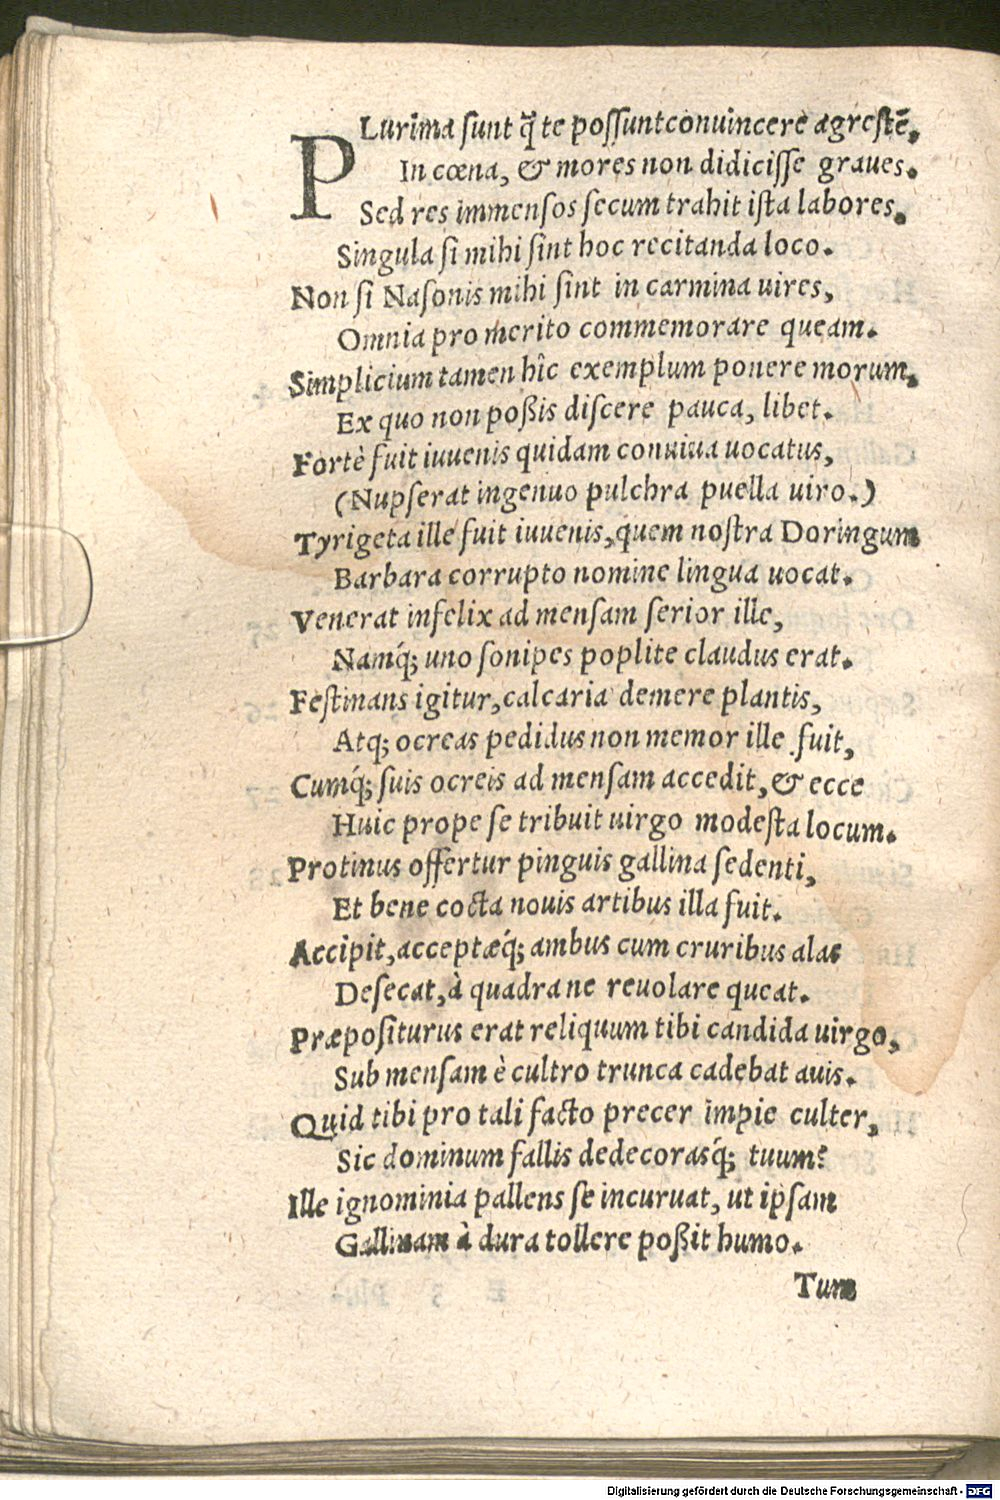 PLurima sunt q̃ te possunt conuincere agrestẽ,
In cœna, & mores non didicisse graues.
Sed res immensos secum trahit ista labores,
Singula si mihi sint hoc recitanda loco.
Non si Nasonis mihi sint in carmina uires,
Omnia pro merito commemorare queam.
Simplicium tamen hîc exemplum ponere morum,
Ex quo non poßis discere pauca, libet.
Fortè fuit iuuenis quidam conuiua uocatus,
(Nupserat ingenuo pulchra puella uiro.)
Tyrigeta ille fuit iuuenis, quem nostra Doringum
Barbara corrupto nomine lingua uocat.
Venerat infelix ad mensam serior ille,
Namq́; uno sonipes poplite claudus erat.
Festinans igitur, calcaria demere plantis,
Atq; ocreas pedidus non memor ille fuit,
Cumq́; suis ocreis ad mensam accedit, & ecce
Huic prope se tribuit uirgo modesta locum.
Protinus offertur pinguis gallina sedenti,
Et bene cocta nouis artibus illa fuit.
Accipit, acceptæq́; ambus cum cruribus alas
Desecat, à quadra ne reuolare queat.
Præpositurus erat reliquum tibi candida uirgo,
Sub mensam è cultro trunca cadebat auis.
Quid tibi pro tali facto precer impie culter,
Sic dominum fallis dedecorasq́; tuum?
Ille ignominia pallens se incuruat, ut ipsam
Gallinam à dura tollere poßit humo.
Tum
Digitalisierung gefördert durch die Deutsche Forschungsgemeinschaft - DFG